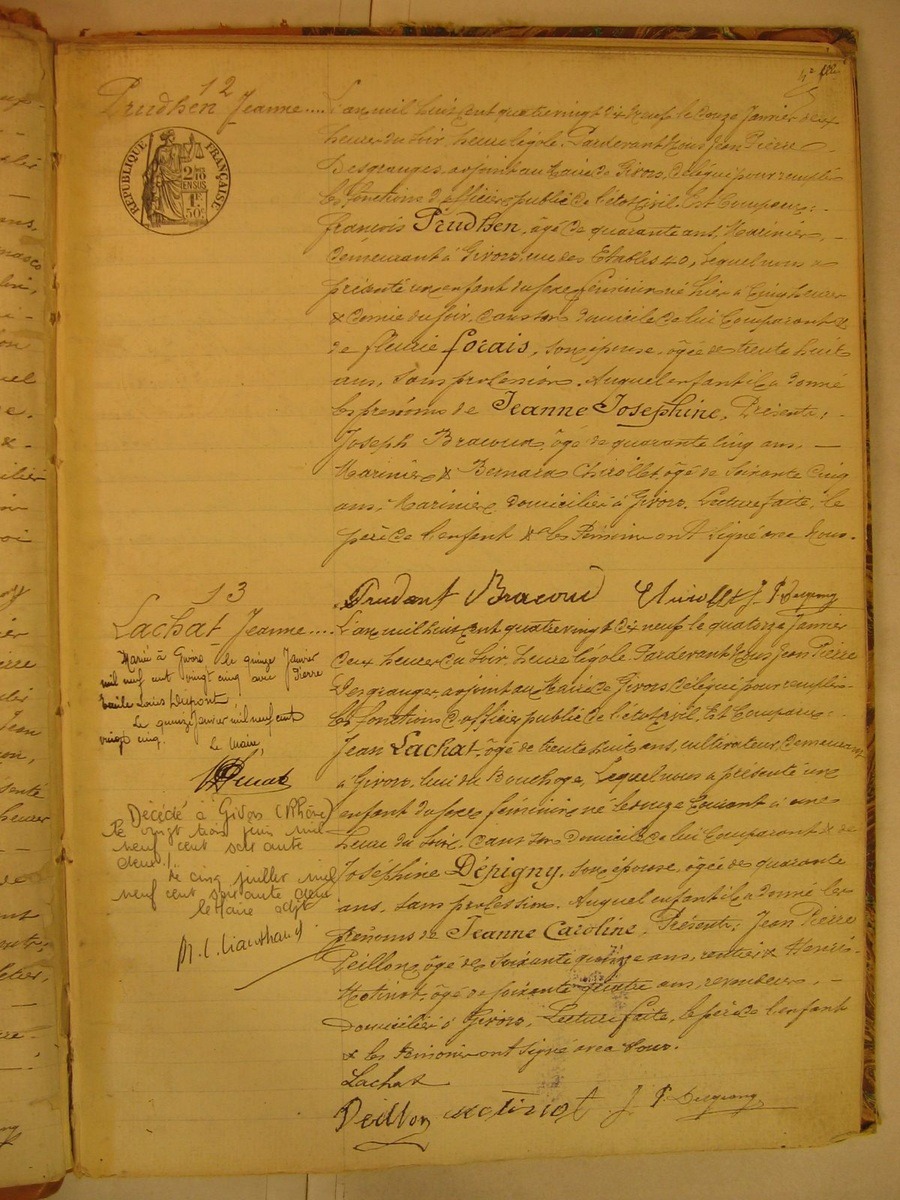 4e fllet
12
Prudhen Jeanne....
RÉPUBLIQUE FRANÇAISE
2 10es
EN SUS
1F.
50c.
L'an mil huit cent quatre vingt dix neuf le douze Janvier deux
heures du soir heure légale. Pardevant Nous Jean Pierre
Desgranges, adjoint au Maire de Givors, délégué pour remplir
les fonctions d'officier public de l'état civil. Est Comparu :
François Prudhen, âgé de quarante ans, Marinier,
demeurant à Givors, rue des Etables 40, lequel nous a
présenté un enfant du sexe féminin né hier à Cinq heures
& demie du soir, dans son domicile de lui Comparant &
de Fleurie Forais, son épouse, âgée de trente huit
ans, Sans profession. Auquel enfant il a donné
les prénoms de Jeanne Josephine. Présents :
Joseph Bracoud, âgé de quarante cinq ans, —
Marinier & Bernard Chirollet, âgé de Soixante Cinq
ans, Marinier, domiciliés à Givors. Lecture faite, le
père de l'enfant & les témoins ont signé avec Nous.
Prudent Bracoud Chirollet J. P. Desgrang
13
Lachat Jeanne....
Marié à Givors le quinze Janvier
mil neuf cent vingt cinq avec Pierre
Emile Louis Dumont
Le quinze Janvier mil neuf cent
vingt cinq.
Le Maire,
Décédé à Givors (Rhône)
le vingt trois juin mil
neuf cent soixante
deux.
Le cinq juillet mil
neuf cent soixante deux
le Maire adjt
L'an mil huit cent quatre vingt dix neuf le quatorze Janvier
deux heures du soir heure légale. Pardevant Nous Jean Pierre
Desgranges, adjoint au Maire de Givors délégué pour remplir
les fonctions d'officier public de l'état civil. Est Comparu :
Jean Lachat, âgé de trente huit ans, cultivateur, demeurant
à Givors, lieu de Bouchage, Lequel nous a présenté un
enfant du sexe féminin né le douze Courant à une
heure du soir, dans son domicile de lui Comparant & de
Joséphine Dépigny, son épouse, âgée de quarante
ans, Sans profession. Auquel enfant il a donné les
prénoms de Jeanne Caroline. Présents : Jean Pierre
Peillon, âgé de soixante quatorze ans, rentier & Henri
Motinot, âgé de soixante quatre ans, revendeur, —
domiciliés à Givors. Lecture faite, le père de l'enfant
& les témoins ont signé avec Nous.
Lachat
Peillon Motinot J. P. Desgrang